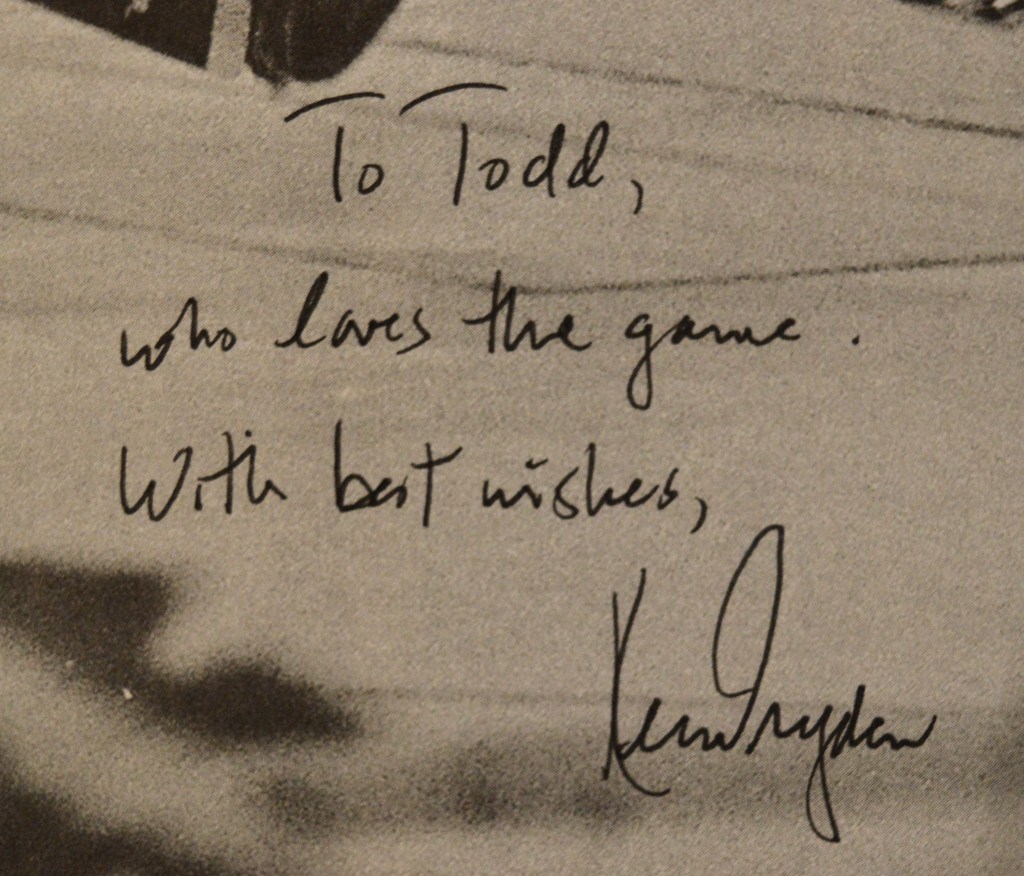 To Todd,
who loves the game.
With best wishes,
Ken Dryden